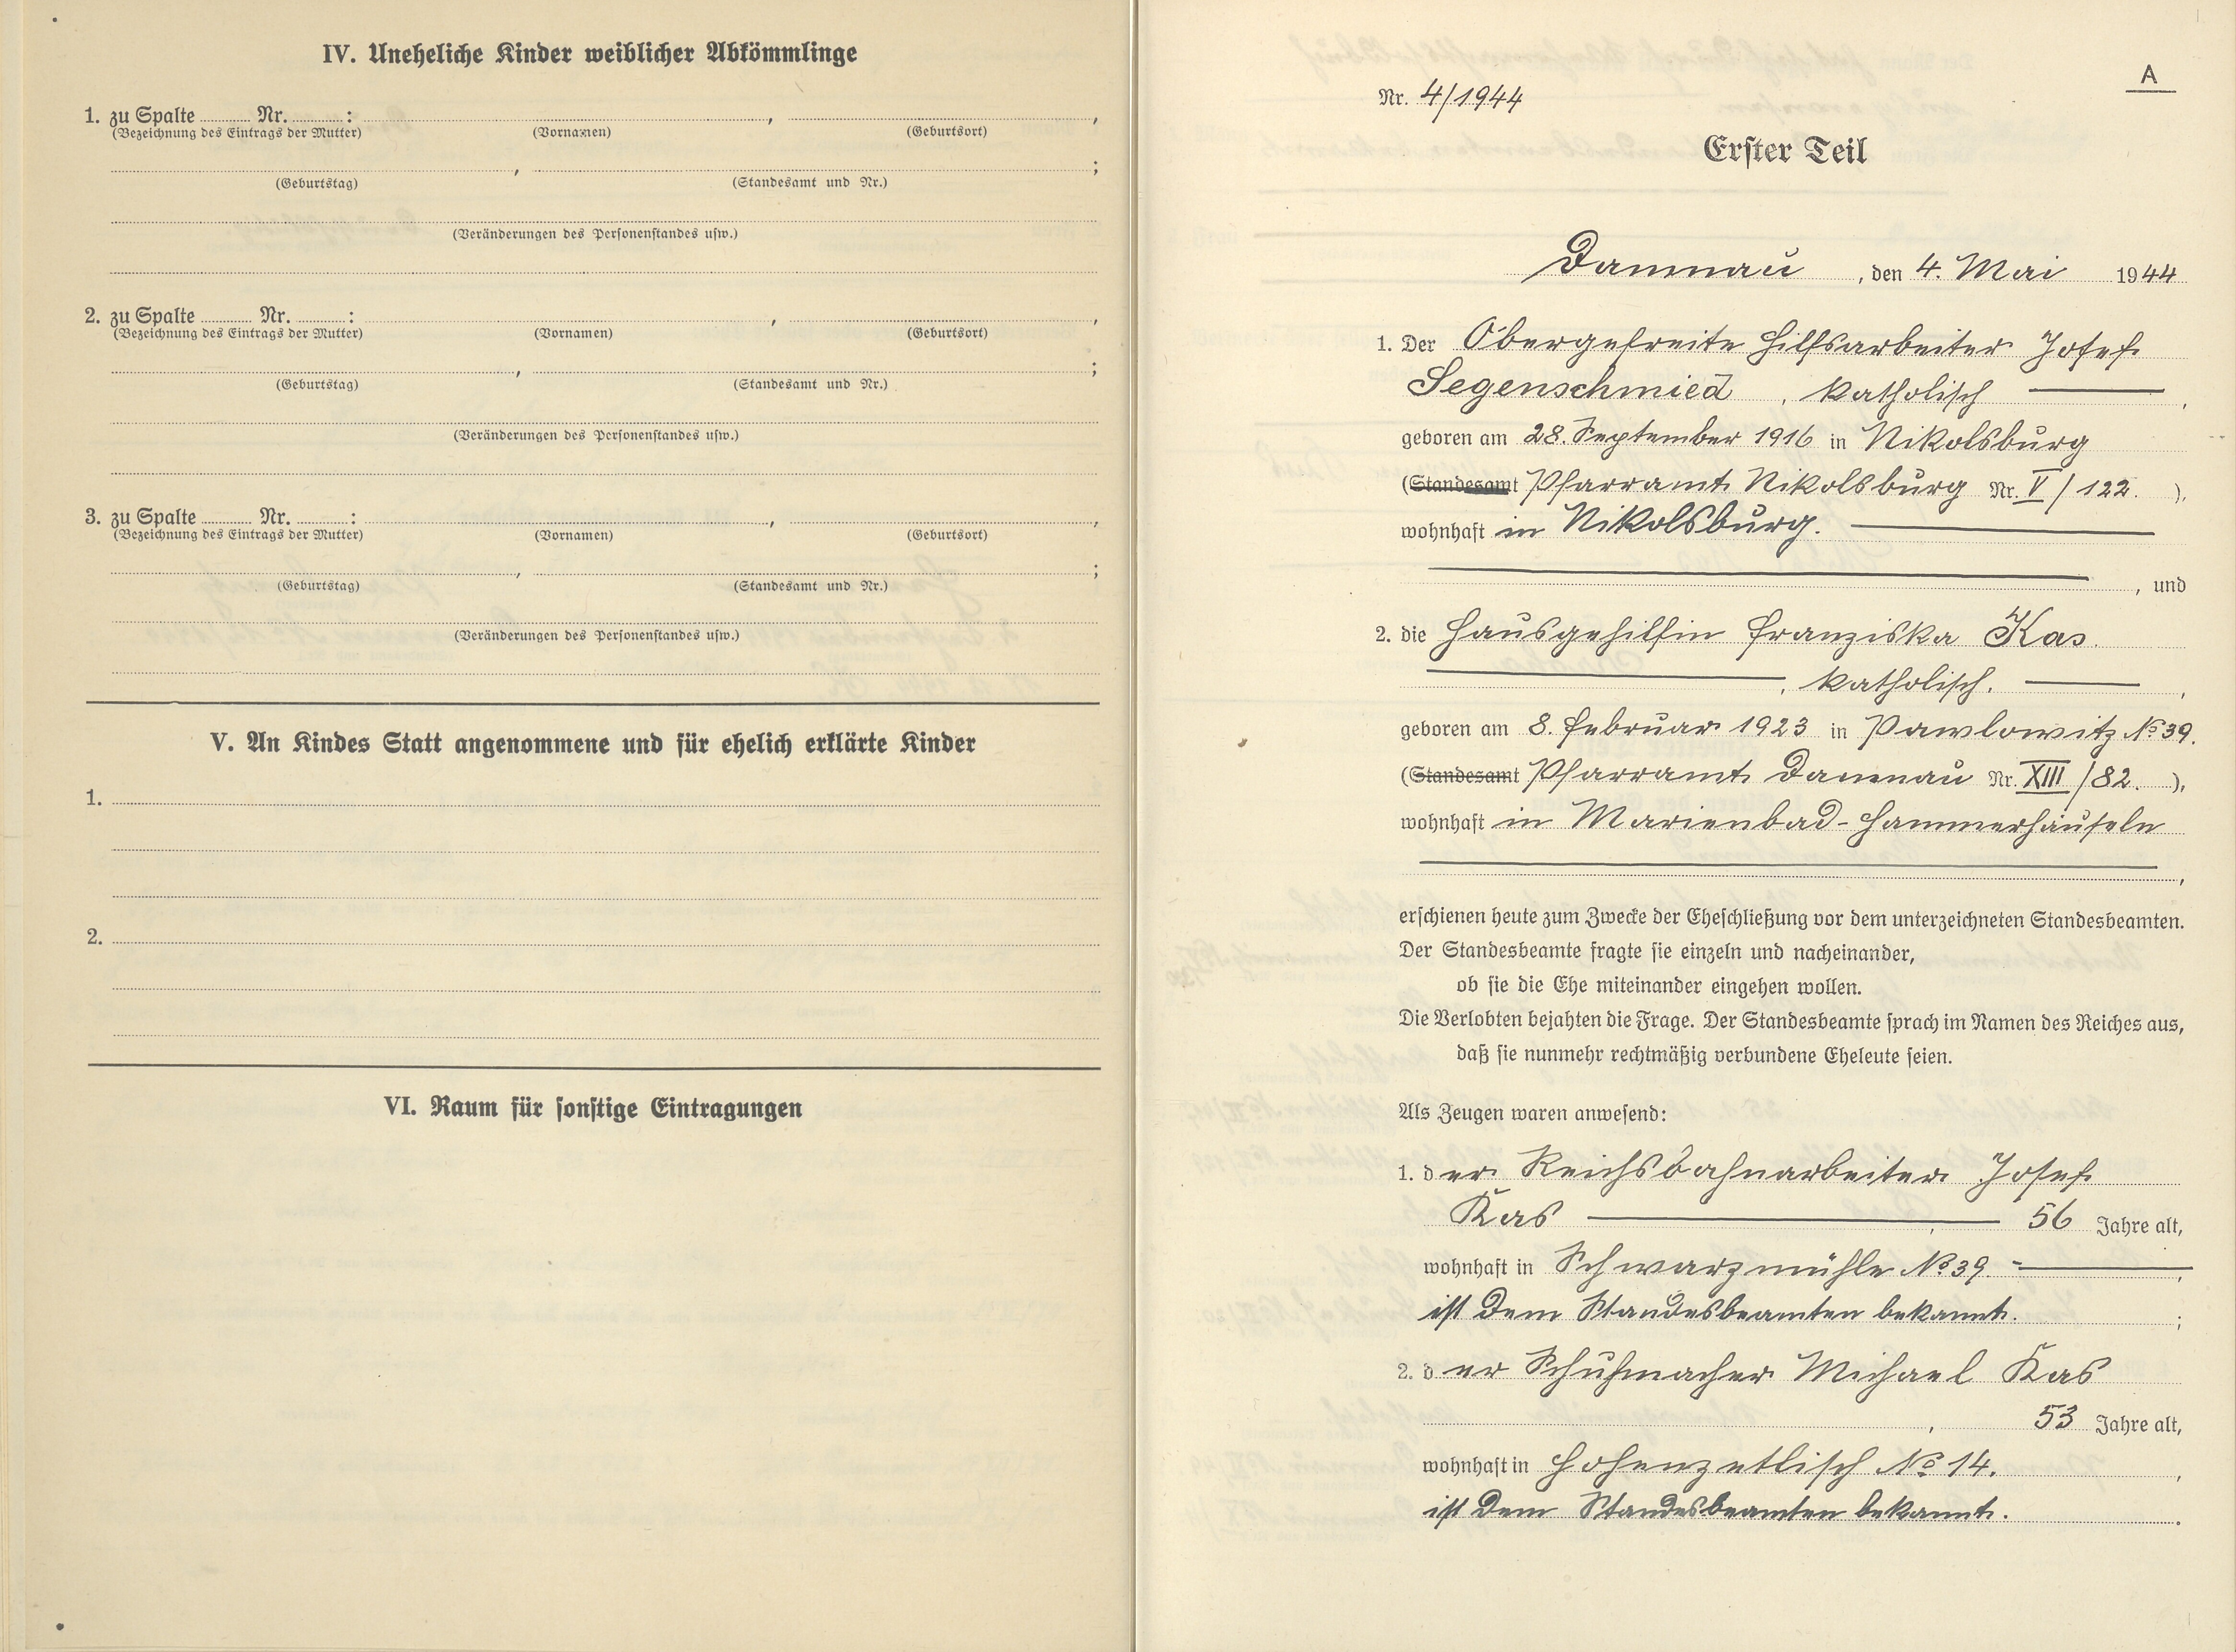 IV. Uneheliche Kinder weiblicher Abkömmlinge
1. zu Spalte ........ Nr. ........ : ........ , ........ ,
(Bezeichnung des Eintrags der Mutter) (Vornamen) (Geburtsort)
........ , ........ ;
(Geburtstag) (Standesamt und Nr.)
(Veränderungen des Personenstandes usw.)
2. zu Spalte ........ Nr. ........ : ........ , ........ ,
(Bezeichnung des Eintrags der Mutter) (Vornamen) (Geburtsort)
........ , ........ ;
(Geburtstag) (Standesamt und Nr.)
(Veränderungen des Personenstandes usw.)
3. zu Spalte ........ Nr. ........ : ........ , ........ ,
(Bezeichnung des Eintrags der Mutter) (Vornamen) (Geburtsort)
........ , ........ ;
(Geburtstag) (Standesamt und Nr.)
(Veränderungen des Personenstandes usw.)
V. An Kindes Statt angenommene und für ehelich erklärte Kinder
1.
2.
VI. Raum für sonstige Eintragungen
A
Nr. 4/1944
Erster Teil
Damnau , den 4. Mai 1944
1. Der Obergefreite Hilfsarbeiter Josef
Segenschmied , katholisch ,
geboren am 28. September 1916 in Nikolsburg
(Standesamt Pfarramt Nikolsburg Nr. V/122. ),
wohnhaft in Nikolsburg.
, und
2. die Hausgehilfin Franziska Kas
, katholisch. ,
geboren am 8. Februar 1923 in Pawlowitz No 39.
(Standesamt Pfarramt Damnau Nr. XIII/82. ),
wohnhaft in Marienbad-Hammerhäuseln
,
erschienen heute zum Zwecke der Eheschließung vor dem unterzeichneten Standesbeamten.
Der Standesbeamte fragte sie einzeln und nacheinander,
ob sie die Ehe miteinander eingehen wollen.
Die Verlobten bejahten die Frage. Der Standesbeamte sprach im Namen des Reiches aus,
daß sie nunmehr rechtmäßig verbundene Eheleute seien.
Als Zeugen waren anwesend:
1. der Reichsbahnarbeiter Josef
Kas , 56 Jahre alt,
wohnhaft in Schwarzmühle No 39. ,
ist dem Standesbeamten bekannt. ;
2. der Schuhmacher Michael Kas
, 53 Jahre alt,
wohnhaft in Hohenzetlisch No 14. ,
ist dem Standesbeamten bekannt. .